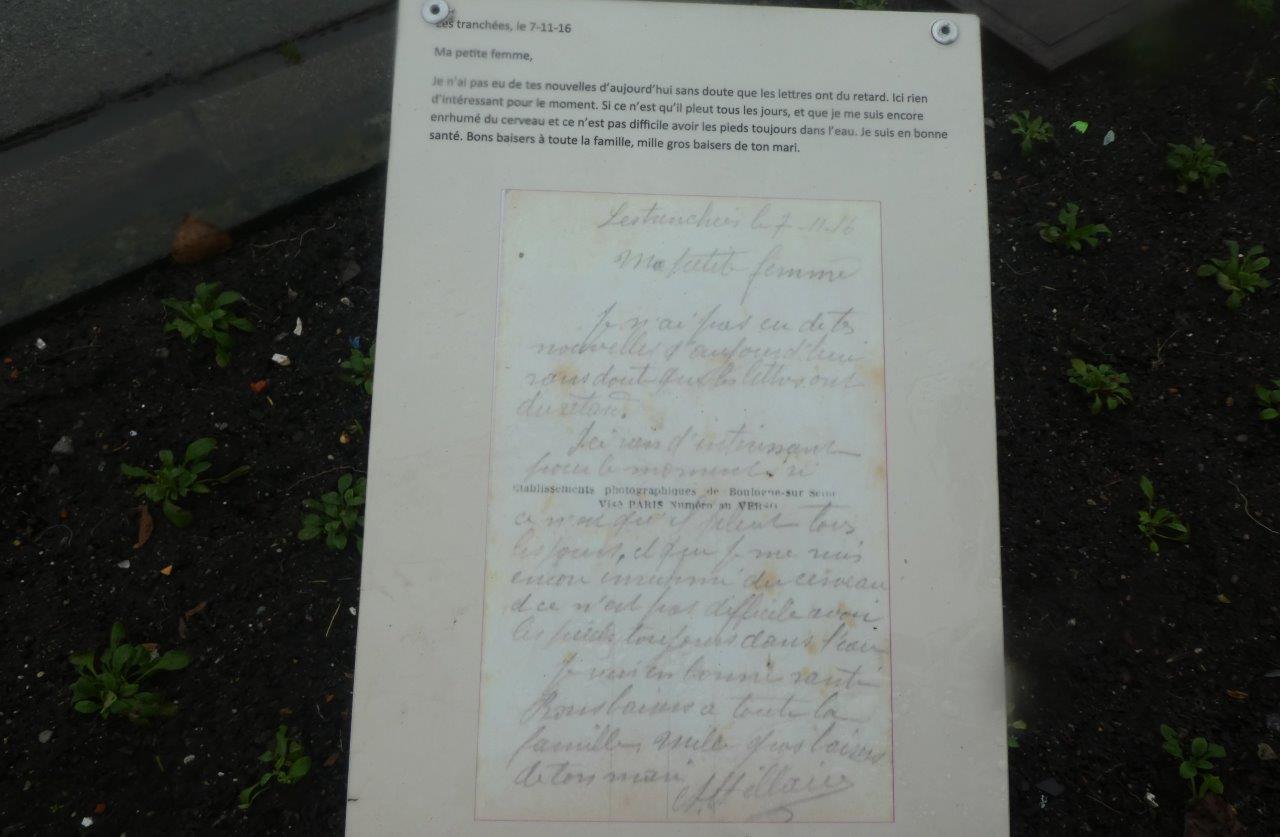 Les tranchées, le 7-11-16
Ma petite femme,
Je n'ai pas eu de tes nouvelles d'aujourd'hui sans doute que les lettres ont du retard. Ici rien
d'intéressant pour le moment. Si ce n'est qu'il pleut tous les jours, et que je me suis encore
enrhumé du cerveau et ce n'est pas difficile avoir les pieds toujours dans l'eau. Je suis en bonne
santé. Bons baisers à toute la famille, mille gros baisers de ton mari.
Les tranchées le 7-11-16
Ma petite femme
Je n'ai pas eu de tes
nouvelles d'aujourd'hui
sans doute que les lettres ont
du retard.
Ici rien d'intéressant
pour le moment. si
Etablissements photographiques de Boulogne-sur Seine
Visé PARIS Numéro au VERSO
ce n'est qu'il pleut tous
les jours, et que je me suis
encore enrhumé du cerveau
et ce n'est pas difficile avoir
les pieds toujours dans l'eau
Je suis en bonne santé
Bons baisers a toute la
famille, mille gros baisers
de ton mari